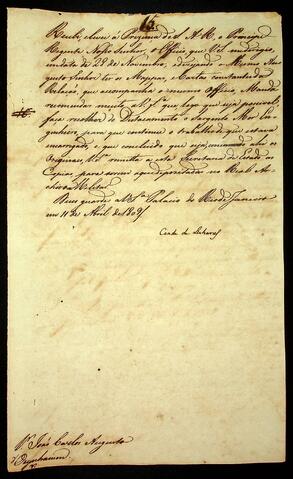 Recebi, e levei á Prezença de S. A. R. o Principe
Regente Nosso Senhor, o Officio que V. S.ª me dirigio
na data de 28 de Novembro, e dezejando o Mesmo Au-
gusto Senhor ter os Mappas, e Cartas constantes da
Relação, que acompanha o mesmo Officio, Manda
recomendar muito a V. S.ª que logo que seja possivel,
faça recolher do Destacamento o Sargento Mor En-
genheiro para que continue o trabalho de que estava
encarregado, e que concluido que seja,
Originaes, V. S.ª remetta a esta Secretaria de Estado as
Copias para serem aqui depozitadas no Real Ar-
chivo Militar.
Deos guarde a V. S.ª Palacio do Rio de Janeiro
em 11 de Abril de 1809
Conde de Linhares
S.r João Carlos Augusto
d'Oeynhausen